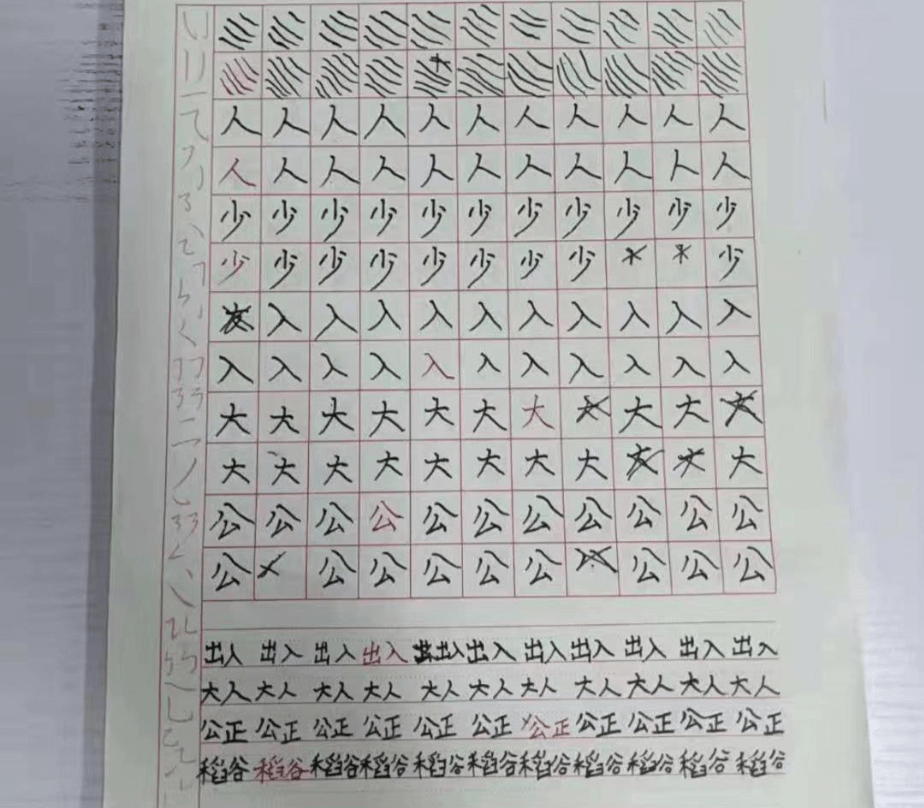 人 人 人 人 人 人 人 人 人 人 人
人 人 人 人 人 人 人 人 人 人 人
少 少 少 少 少 少 少 少 少 少 少
少 少 少 少 少 少 少 少 少
入 入 入 入 入 入 入 入 入 入
入 入 入 入 入 入 入 入 入 入 入
大 大 大 大 大 大 大 大 大
大 大 大 大 大 大 大 大 大
公 公 公 公 公 公 公 公 公 公 公
公 公 公 公 公 公 公 公 公
出人 出入 出入 出入 出入 出入 出入 出入 出入 出入
大人 大人 大人 大人 大人 大人 大人 大人 大人 大人 大人
公正 公正 公正 公正 公正 公正 公正 公正 公正 公正 公正
稻谷 稻谷 稻谷 稻谷 稻谷 稻谷 稻谷 稻谷 稻谷 稻谷 稻谷